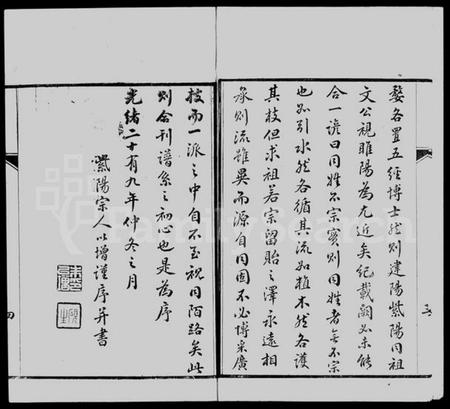 婺各置五經博士然則建陽紫陽同祖
文公視睢陽為尤近矣紀載闕必未能
合一諺曰同姓不宗實則同姓者無不宗
也如引水然各循其流如植木然各護
其枝但求祖若宗留貽之澤永遠相
承則流雖異而源自同固不必博采廣
技而一派之中自不至視同陌路矣此
則合刊譜系之初心也是為序
光緒二十有九年仲冬之月
紫陽宗人以增謹序并書
三
四
FamilySearch